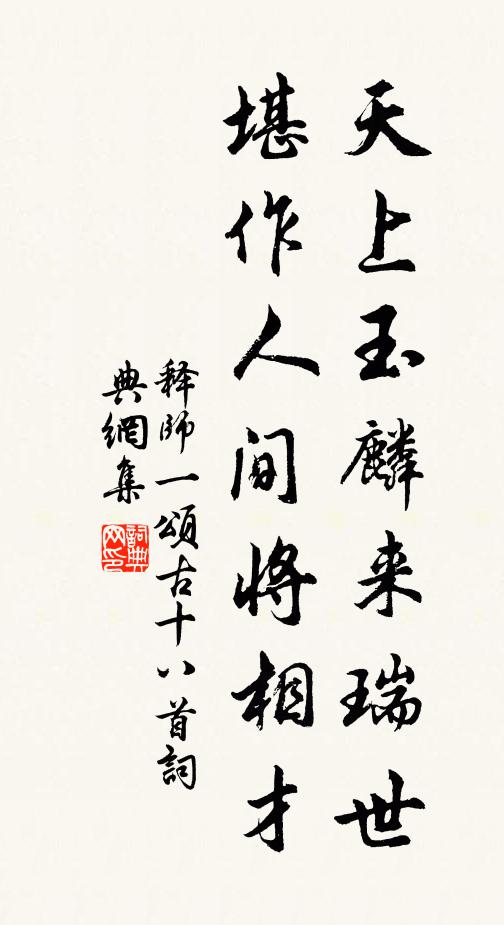 天上玉麟来瑞世
堪作人间将相才
释师一頌古十八首詞
典網集
詞典网印